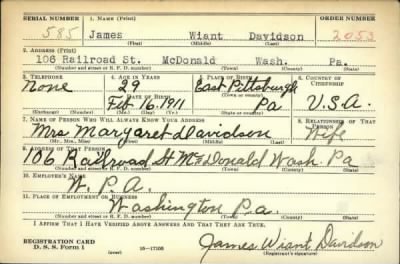 SERIAL NUMBER 1. NAME (Print) ORDER NUMBER
585 James Wiant Davidson 2053
(First) (Middle) (Last)
2. ADDRESS (Print)
106 Railroad St. McDonald Wash. Pa.
(Number and street or R. F. D. number) (Town) (County) (State)
3. TELEPHONE 4. AGE IN YEARS 5. PLACE OF BIRTH 6. COUNTRY OF CITIZENSHIP
None 29 East Pittsburgh
DATE OF BIRTH (Town or county)
Feb. 16. 1911 Pa U.S.A.
(Exchange) (Number) (Mo.) (Day) (Yr.) (State or country)
7. NAME OF PERSON WHO WILL ALWAYS KNOW YOUR ADDRESS 8. RELATIONSHIP OF THAT PERSON
Mrs Margaret Davidson Wife
(Mr., Mrs., Miss) (First) (Middle) (Last)
9. ADDRESS OF THAT PERSON
106 Railroad St McDonald Wash. Pa
(Number and street or R. F. D. number) (Town) (County) (State)
10. EMPLOYER'S NAME
W. P. A.
11. PLACE OF EMPLOYMENT OR BUSINESS
Washington Pa.
(Number and street or R. F. D. number) (Town) (County) (State)
I AFFIRM THAT I HAVE VERIFIED ABOVE ANSWERS AND THAT THEY ARE TRUE.
REGISTRATION CARD
D. S. S. Form 1 16-17105 James Wiant Davidson